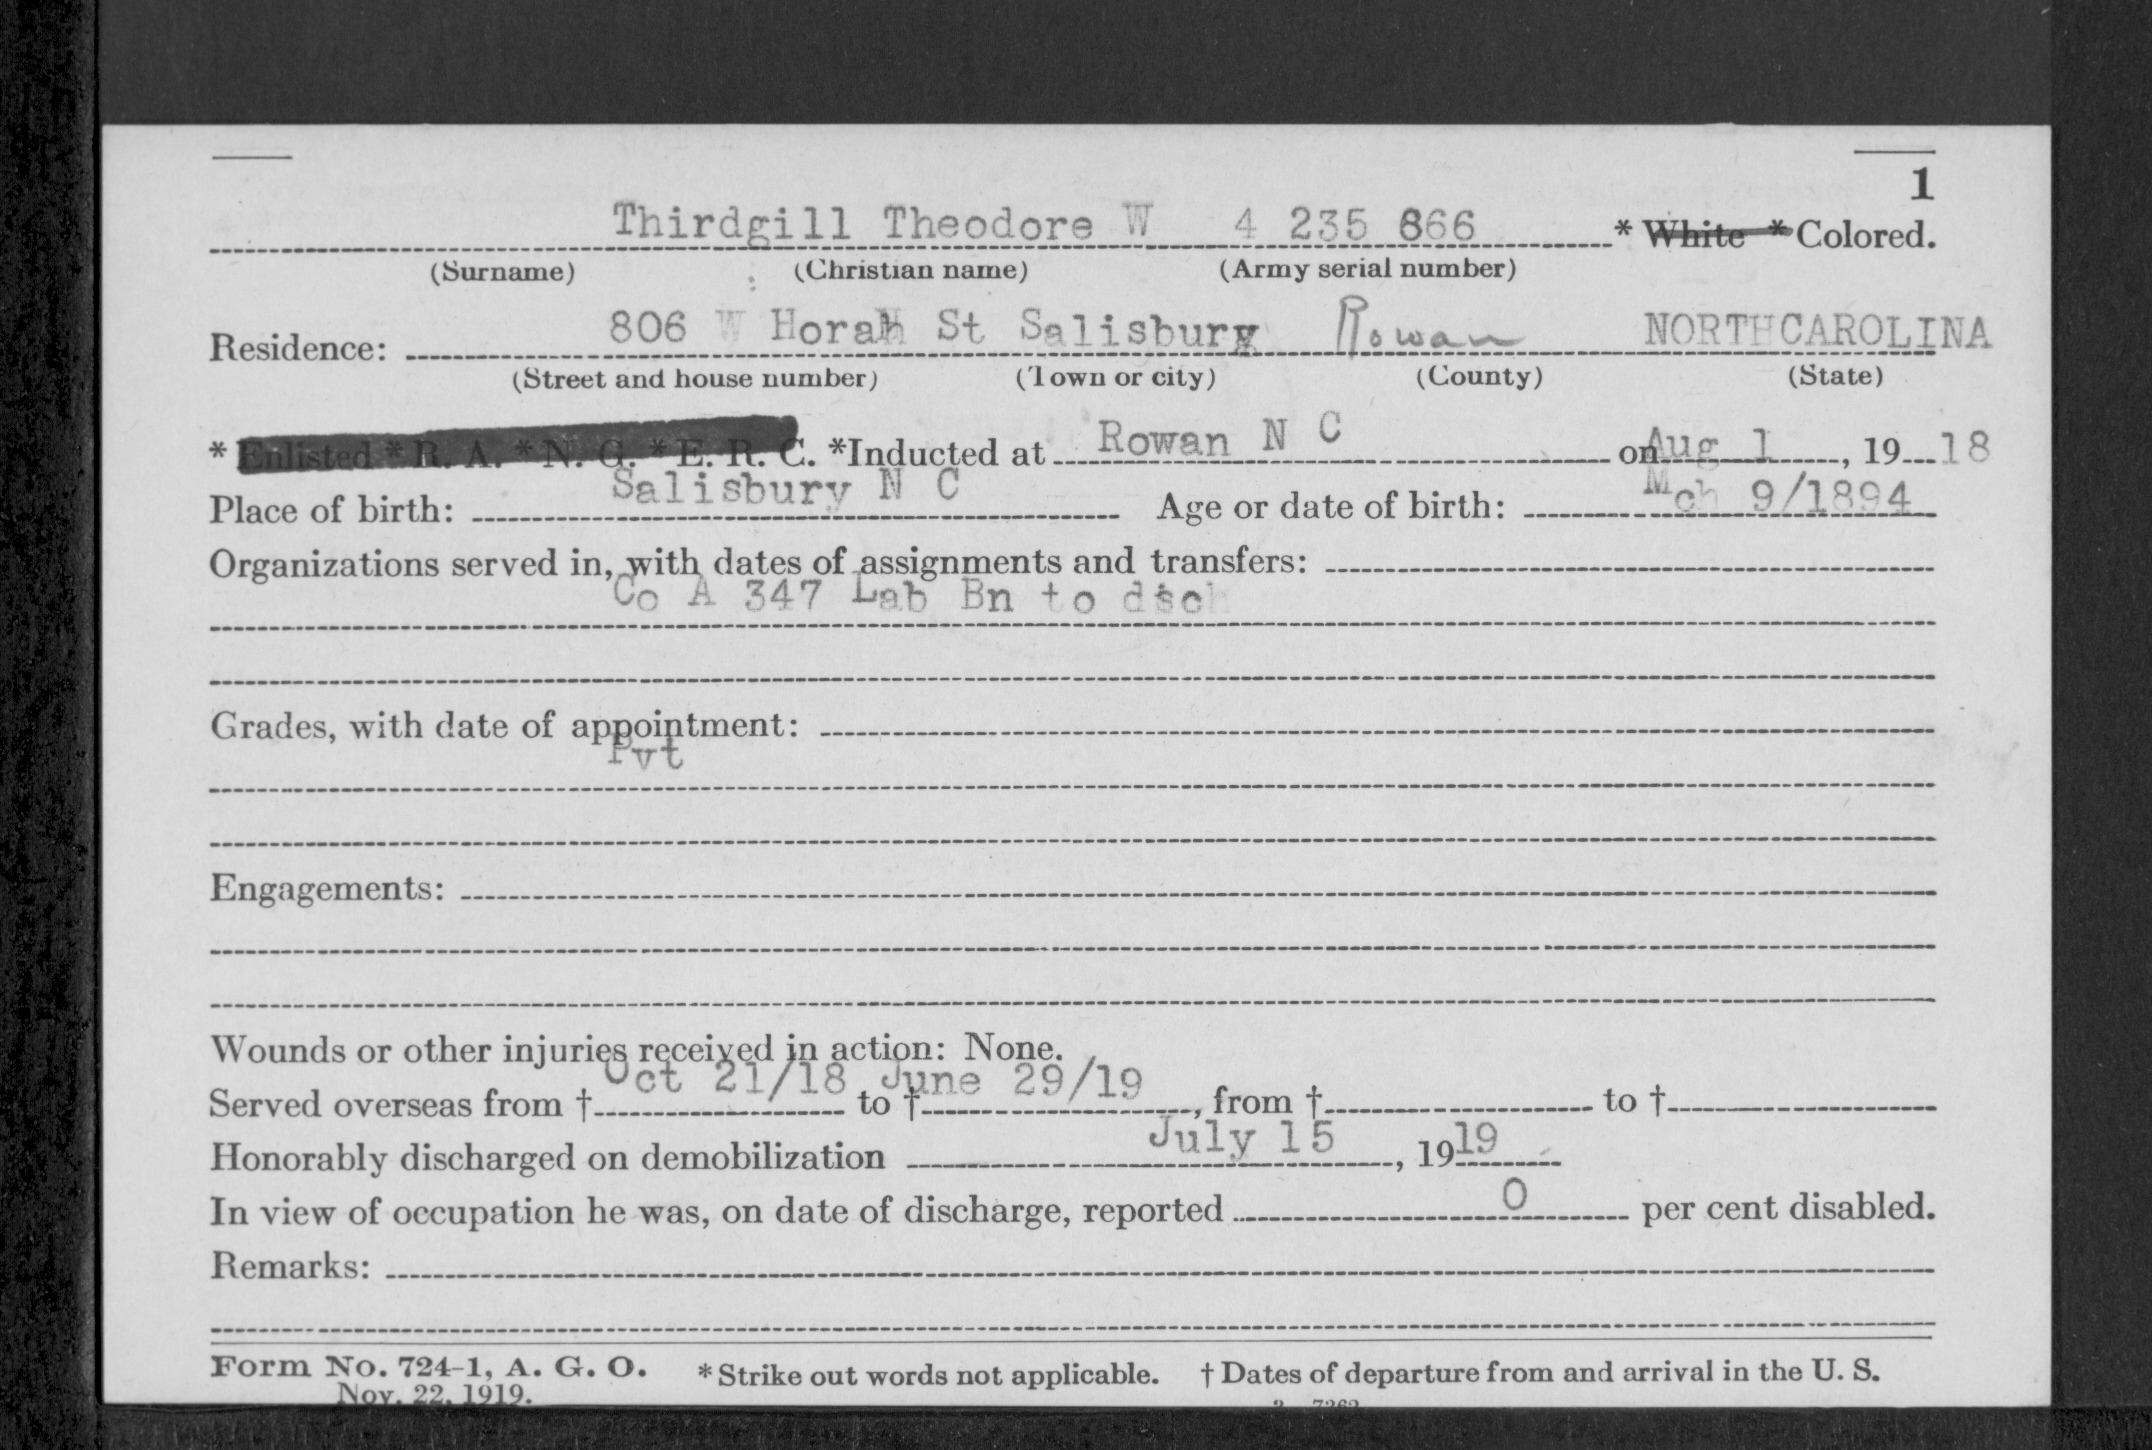 1
Thirdgill Theodore W 4 235 866 * White * Colored.
(Surname) (Christian name) (Army serial number)
Residence: 806 W Horah St Salisbury Rowan NORTH CAROLINA
(Street and house number) (Town or city) (County) (State)
* Enlisted * R. A. * N. G. * E. R. C. *Inducted at Rowan N C on Aug 1, 19 18
Place of birth: Salisbury N C Age or date of birth: Mch 9/1894
Organizations served in, with dates of assignments and transfers:
Co A 347 Lab Bn to disch
Grades, with date of appointment:
Pvt
Engagements:
Wounds or other injuries received in action: None.
Served overseas from † Oct 21/18 to † June 29/19, from † to †
Honorably discharged on demobilization July 15, 19 19
In view of occupation he was, on date of discharge, reported 0 per cent disabled.
Remarks:
Form No. 724-1, A. G. O. * Strike out words not applicable. † Dates of departure from and arrival in the U. S.
Nov. 22, 1919.